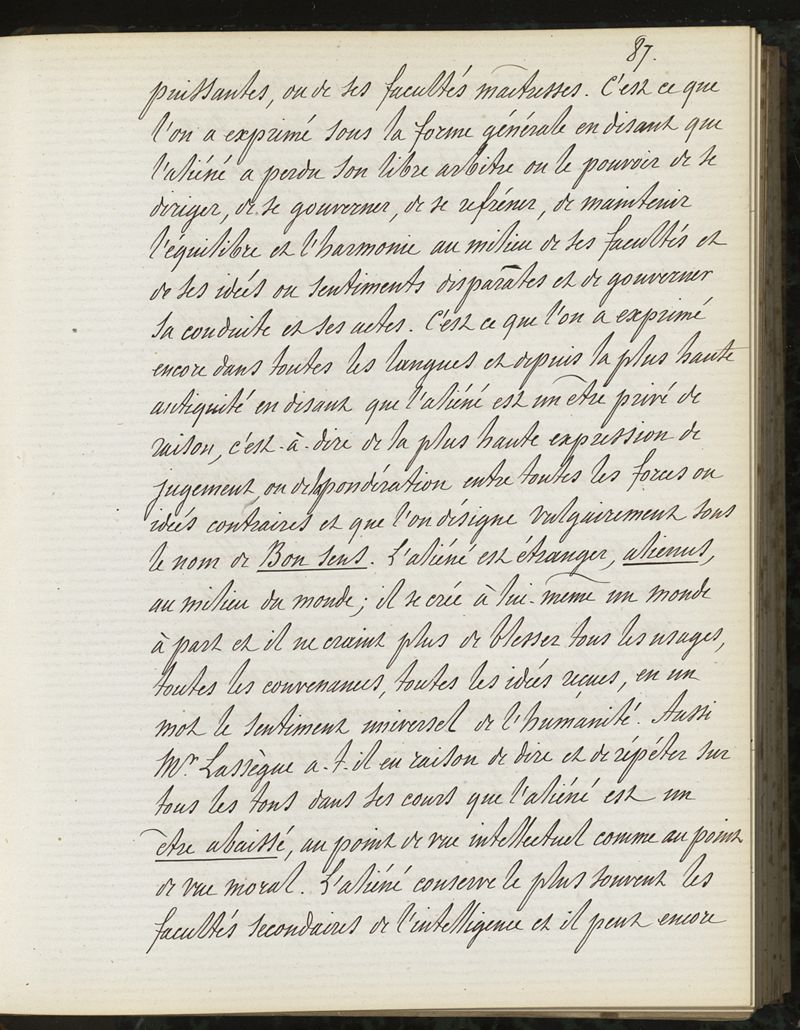 87.
puissantes, ou de ses facultés maîtresses. C'est ce que
l'on a exprimé sous la forme générale en disant que
l'aliéné a perdu son libre arbitre ou le pouvoir de se
diriger, de se gouverner, de se refréner, de maintenir
l'équilibre et l'harmonie au milieu de ses facultés et
de ses idées ou sentiments disparâtes et de gouverner
sa conduite et ses actes. C'est ce que l'on a exprimé
encore dans toutes les langues et depuis la plus haute
antiquité en disant que l'aliéné est un être privé de
raison, c'est-à-dire de la plus haute expression de
jugement, ou de pondération entre toutes les forces ou
idées contraires et que l'on désigne vulgairement sous
le nom de Bon sens. L'aliéné est étranger, alienus,
au milieu du monde; il se crée à lui-même un monde
à part et il ne craint plus de blesser tous les usages,
toutes les convenances, toutes les idées reçues, en un
mot le sentiment universel de l'humanité. Aussi
Mr Lassègue a-t-il eu raison de dire et de répéter sur
tous les tons dans ses cours que l'aliéné est un
être abaissé, au point de vue intellectuel comme au point
de vue moral. L'aliéné conserve le plus souvent les
facultés secondaires de l'intelligence et il peut encore